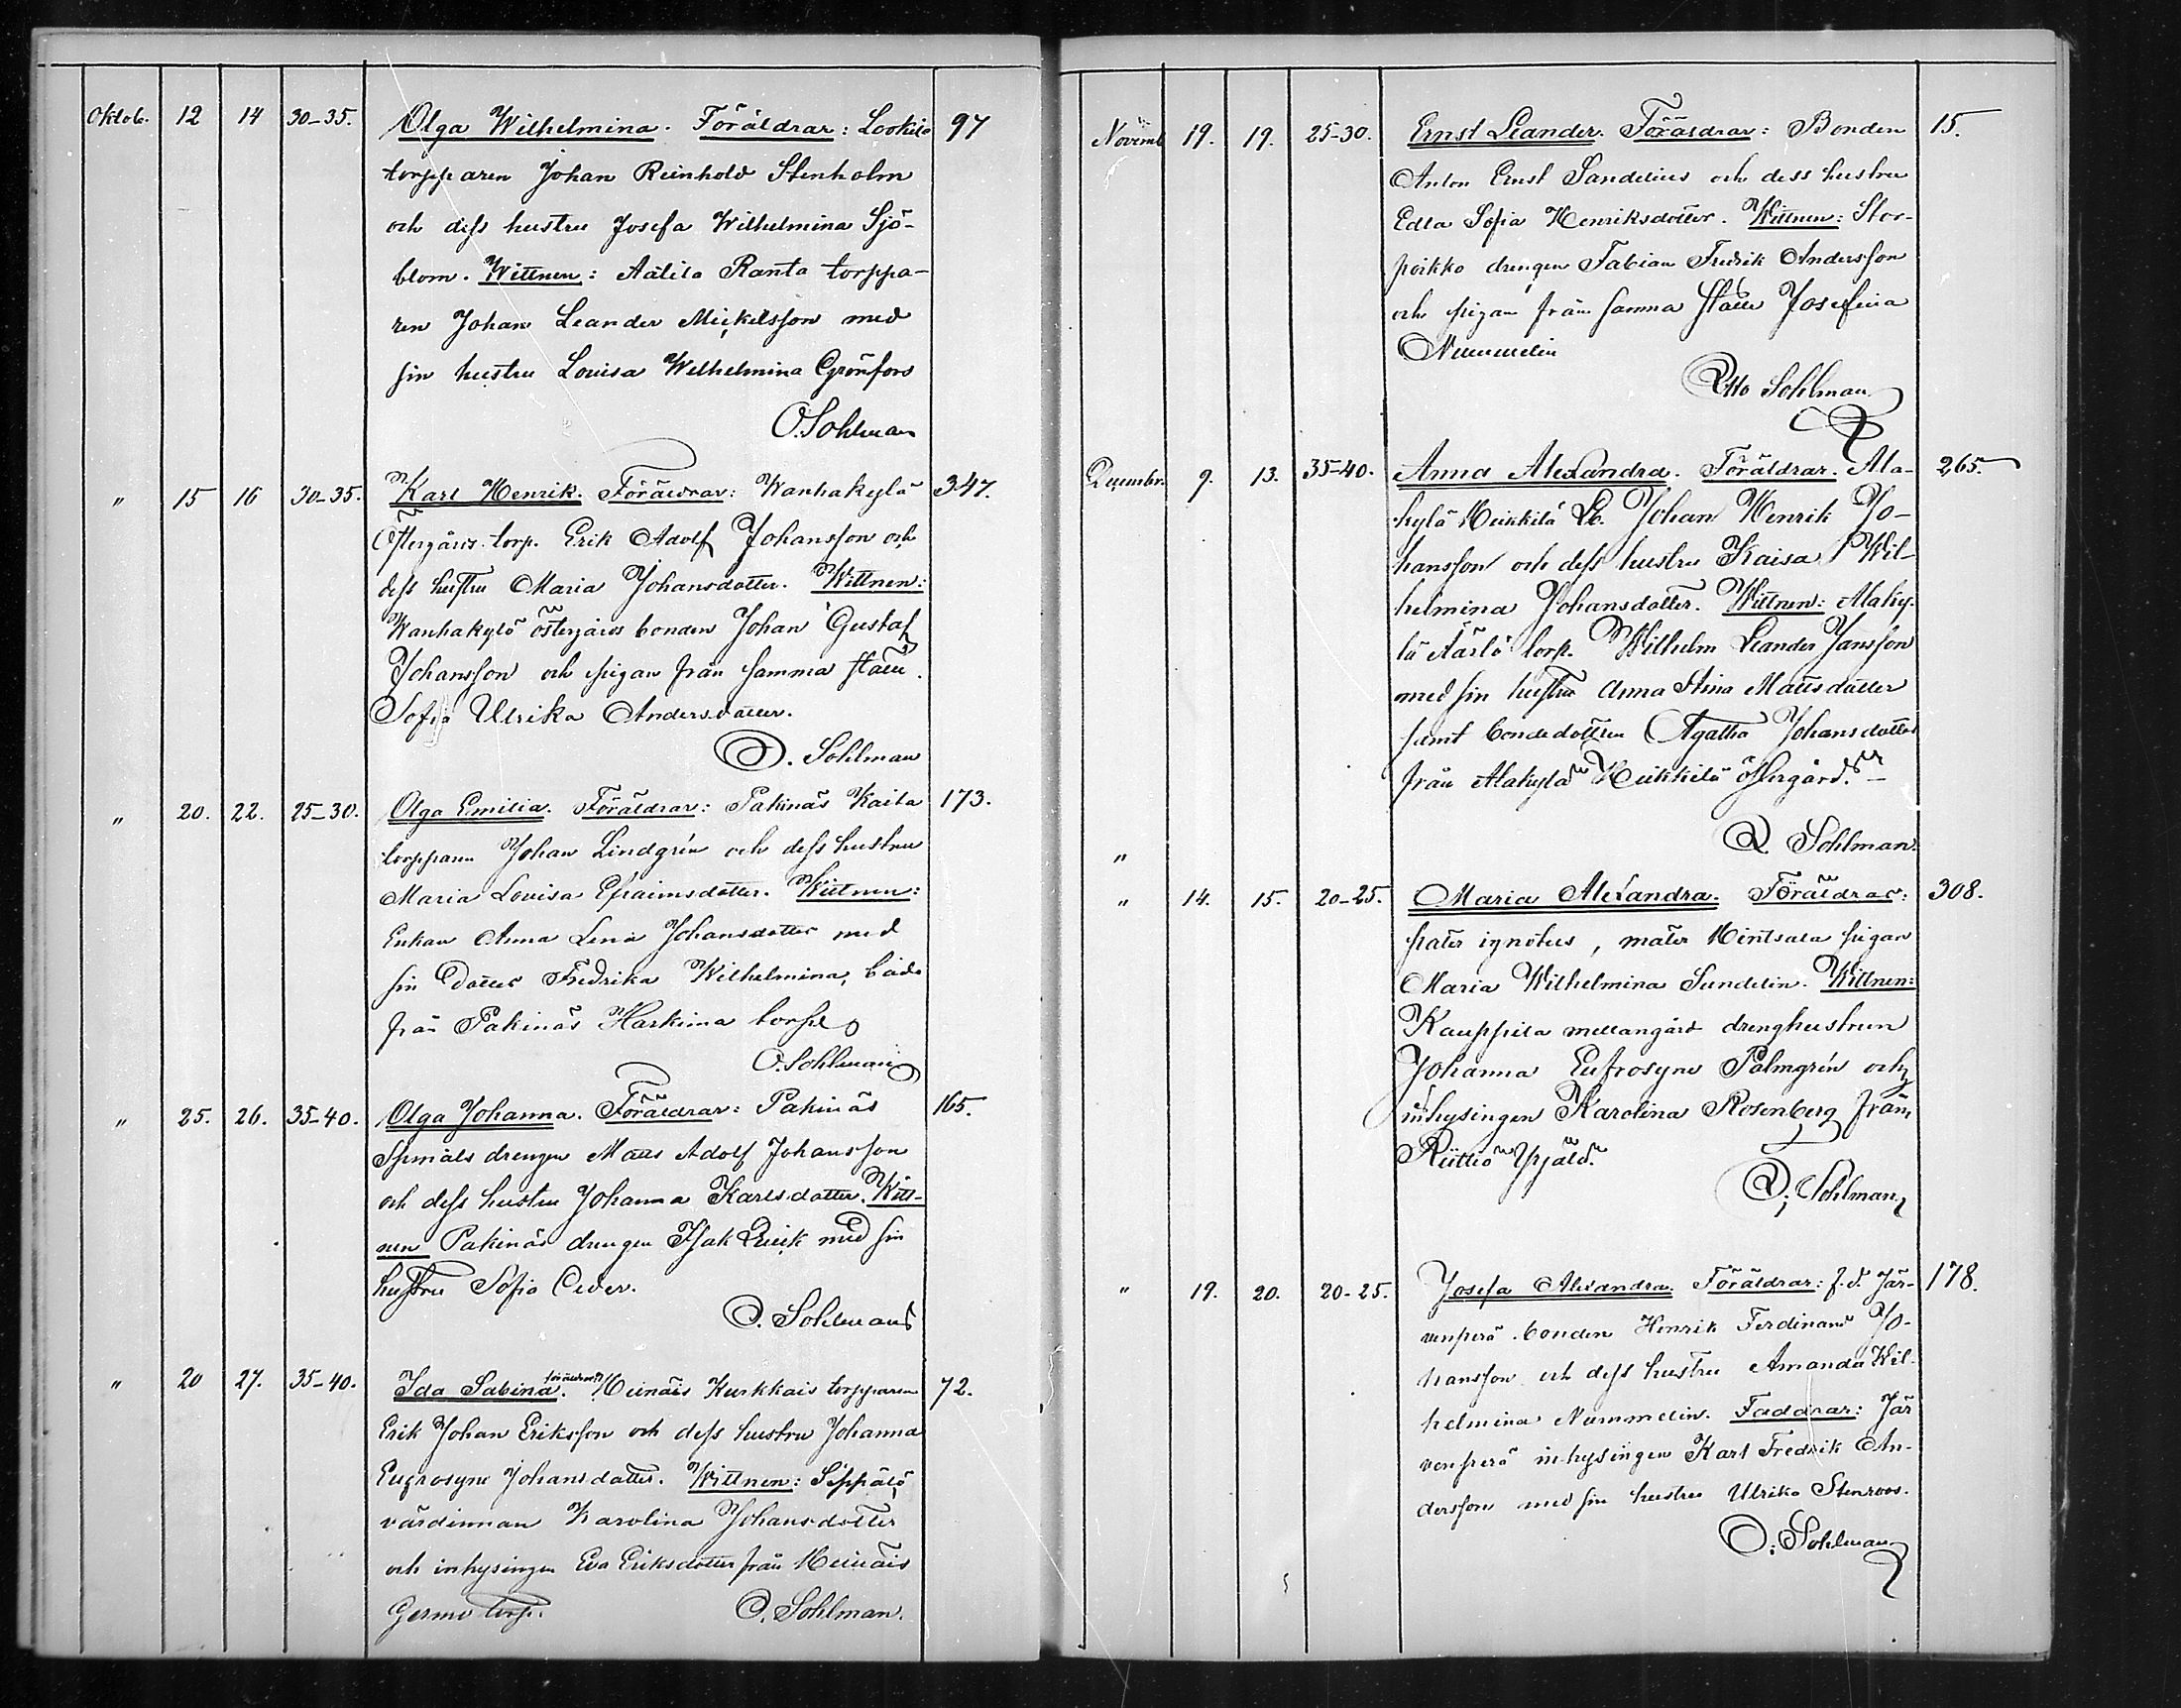 Oktob. 12 14 30-35. Olga Wilhelmina. Föräldrar: Lookila 97
torpparen Johan Reinhold Stenholm
och dess hustru Josefa Wilhelmina Sjö-
blom. Wittnen: Aälila Ranta torppa-
ren Johan Leander Mickelsson med
sin hustru Lovisa Wilhelmina Grönfors
O. Sohlman
" 15 16 30-35. Karl Henrik. Föräldrar: Wanhakylä 347.
Östergårds torp. Erik Adolf Johansson och
dess hustru Maria Johansdotter. Wittnen:
Wanhakylä östergårds bonden Johan Gustaf
Johansson och pigan från samma ställe
Sofia Ulrika Andersdotter.
O. Sohlman
" 20. 22. 25-30. Olga Emilia. Föräldrar: Pakinäs Kaita 173.
torpparen Johan Lindgrén och dess hustru
Maria Lovisa Efraimsdotter. Wittnen:
Enkan Anna Lena Johansdotter med
sin dotter Fredrika Wilhelmina, båda
från Pakinäs Harkima torp
O. Sohlman
" 25. 26. 35-40. Olga Johanna. Föräldrar: Pakinäs 165.
Spinäls drengen Matts Adolf Johansson
och dess hustru Johanna Karlsdotter. Witt-
nen Pakinäs drengen Isak Quick med sin
hustru Sofia Ceder.
O. Sohlman
" 20 27. 35-40. Ida Sabina. föräldrar: Heinäis Kurkkais torpparen 72.
Erik Johan Eriksson och dess hustru Johanna
Eufrosyne Johansdotter. Wittnen: Sippälä
värdinnan Karolina Johansdotter
och inhysingen Eva Eriksdotter från Heinäis
Germo torp. O. Sohlman.
Novemb. 19. 19. 25-30. Ernst Leander. Föräldrar: Bonden 15.
Anton Ernst Sandelius och dess hustru
Edla Sofia Henriksdotter. Wittnen: Stor-
poikko drengen Fabian Fredrik Andersson
och pigan från samma ställe Josefina
Nummelin
Otto Sohlman
Decembr. 9. 13. 35-40. Anna Alexandra. Föräldrar. Ala- 265.
kylä Heikkilä Johan Henrik Jo-
hansson och dess hustru Kaisa Wil-
helmina Johansdotter. Wittnen: Alaky-
lä Äärlä torp. Wilhelm Leander Jansson
med sin hustru Anna Stina Mattsdotter
samt bondedottren Agatha Johansdotter
från Alakylä Heikkilä östergård.
O. Sohlman.
"
" 14. 15. 20-25. Maria Alexandra. Föräldrar: 308.
pater ignotus, mater Hintsala pigan
Maria Wilhelmina Sundelin. Wittnen:
Kauppila mellangård drenghustrun
Johanna Eufrosyne Palmgrén och
inhysingen Karolina Rosenberg från
Riittiö Ypjälä.
O. Sohlman
" 19. 20. 20-25. Josefa Alexandra. Föräldrar: f.d. Jär- 178.
venperä bonden Henrik Ferdinand Jo-
hansson och dess hustru Amanda Wil-
helmina Nummelin. Faddrar: Jär
venperä inhysingen Karl Fredrik An-
dersson med sin hustru Ulrika Stenroos.
O. Sohlman